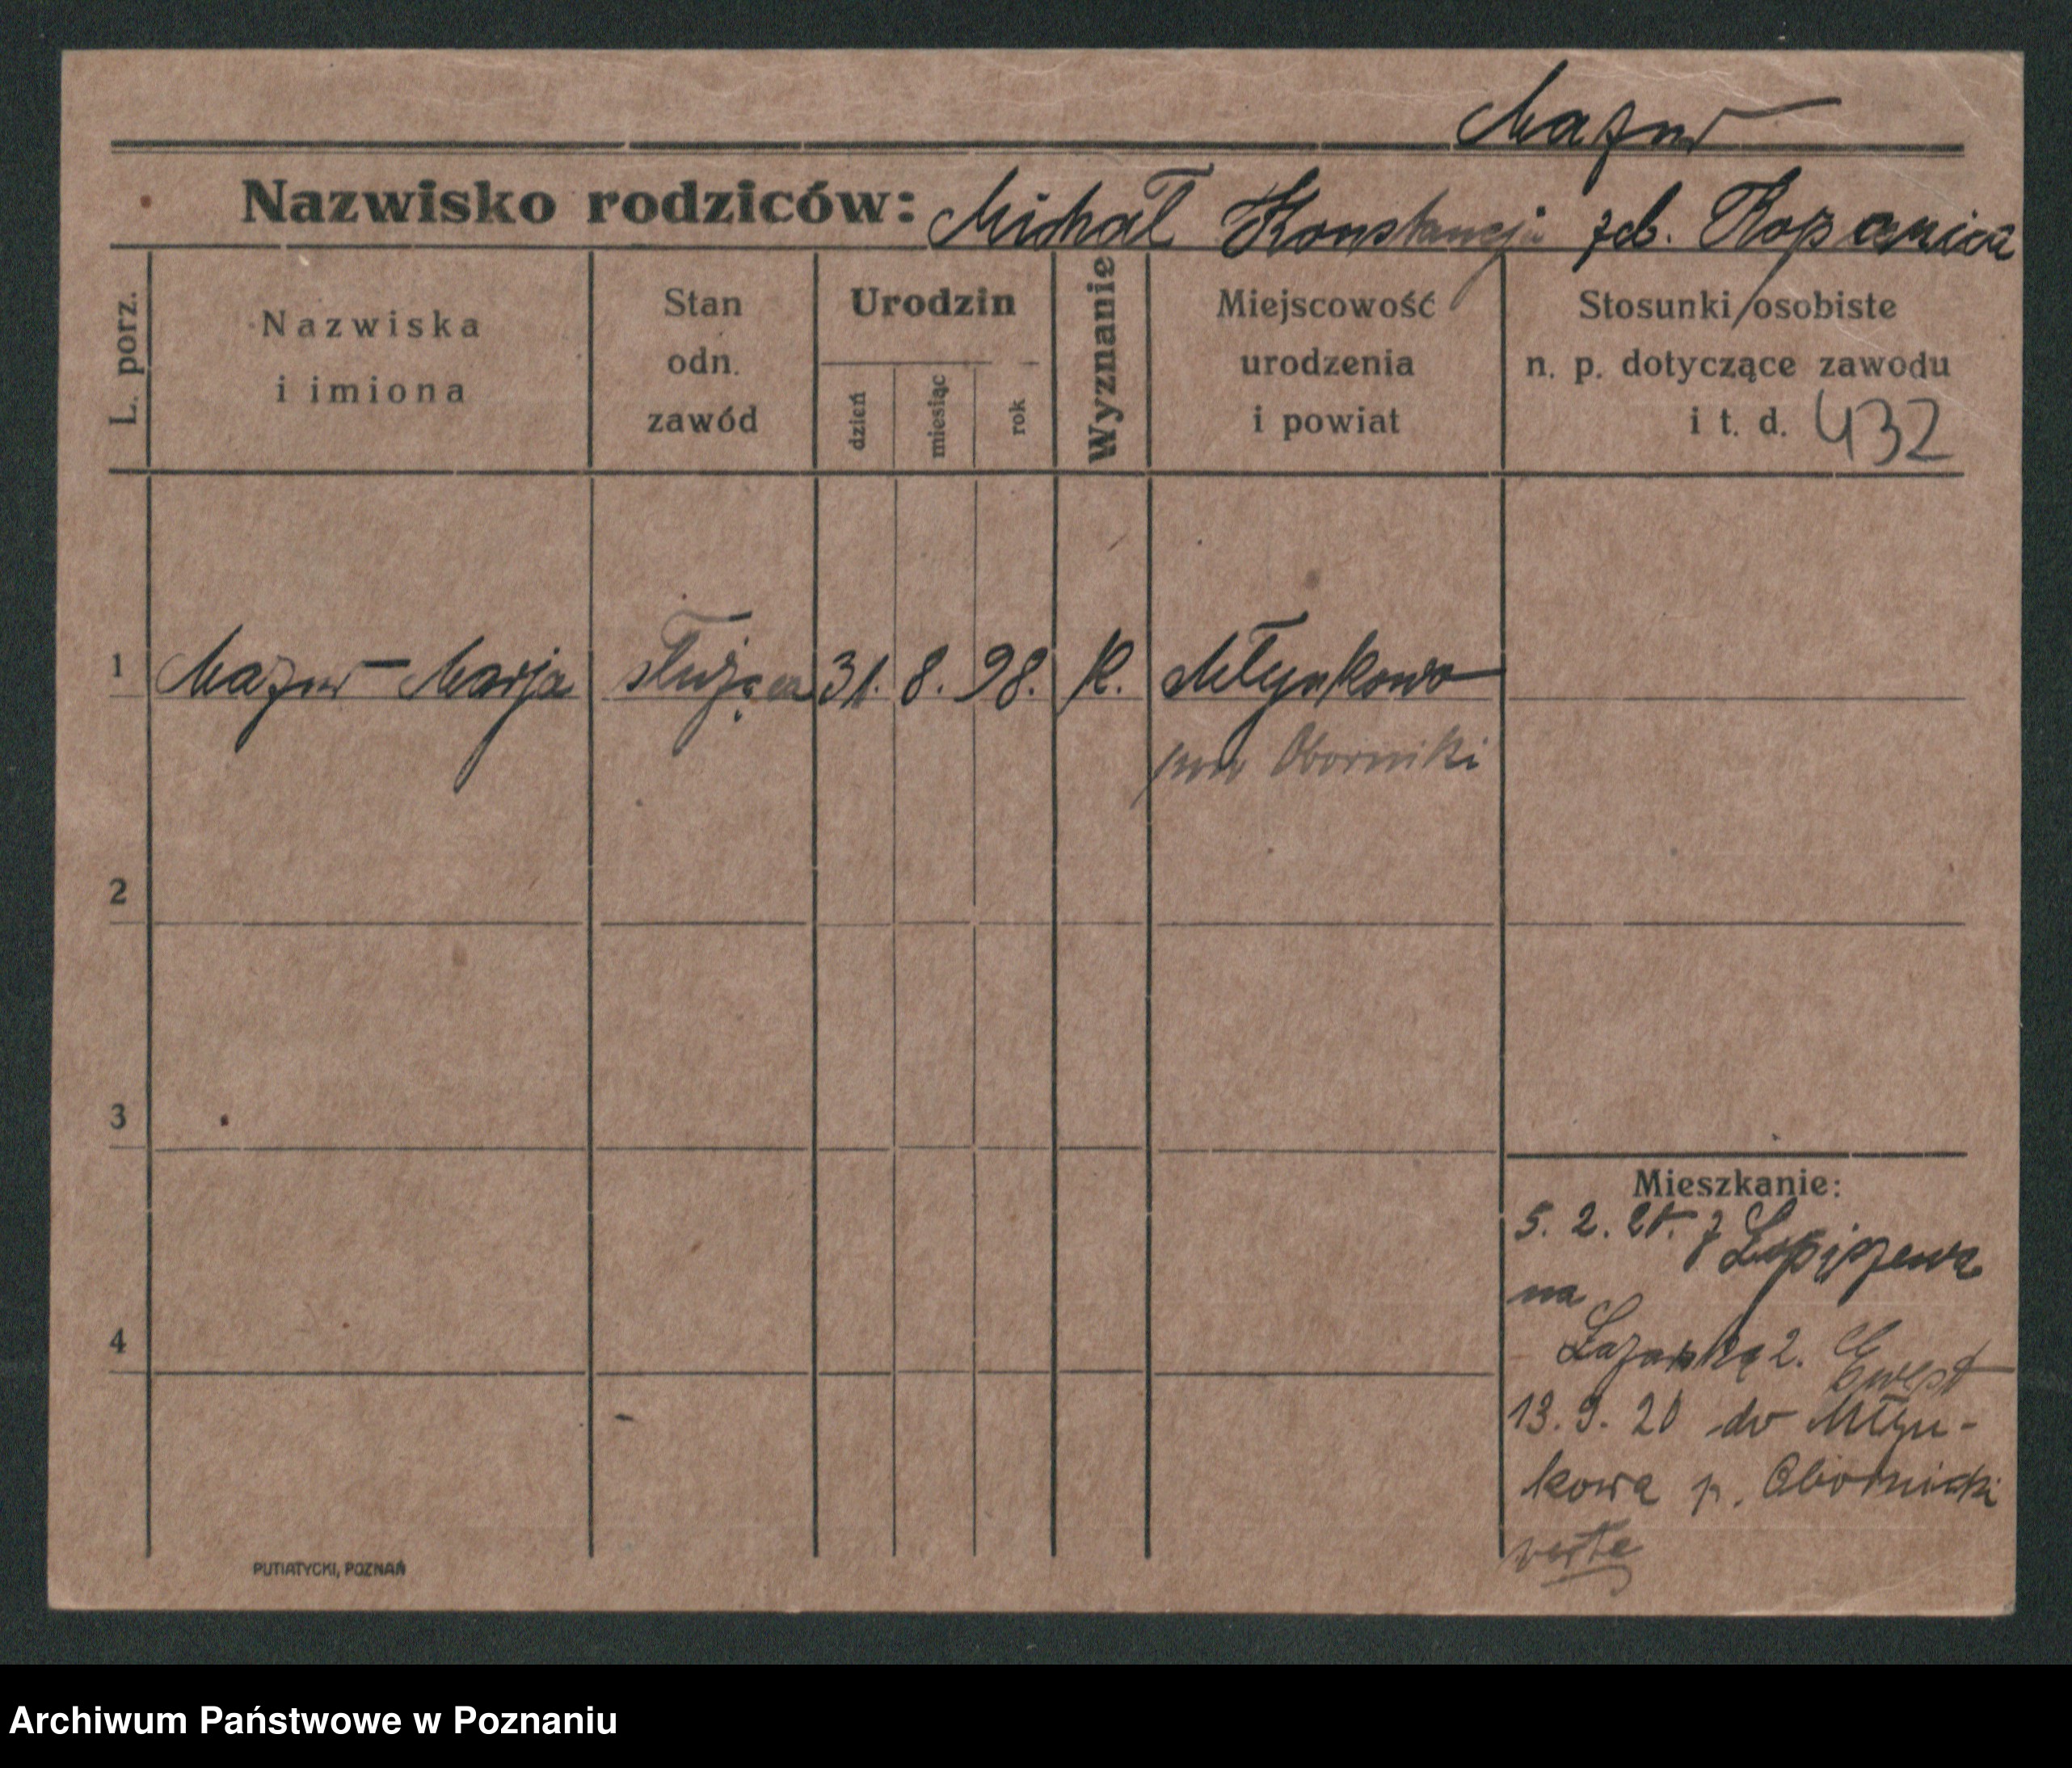 Mazur
Nazwisko rodziców: Michał Konstancja zd. Kopanica
L. porz.
Nazwiska
i imiona
Stan
odn.
zawód
Urodzin
dzień
miesiąc
rok
Wyznanie
Miejscowość
urodzenia
i powiat
Stosunki osobiste
n. p. dotyczące zawodu
i t. d. 432
1 Mazur Marja służąca 31. 8. 98. K. Młynkowo
pow Oborniki
2
3
4
Mieszkanie:
5. 2. 20. z
na
2.
13. 9. 20 do Młyn-
kowa p. Obornicki
verte
PUTIATYCKI, POZNAŃ
Archiwum Państwowe w Poznaniu